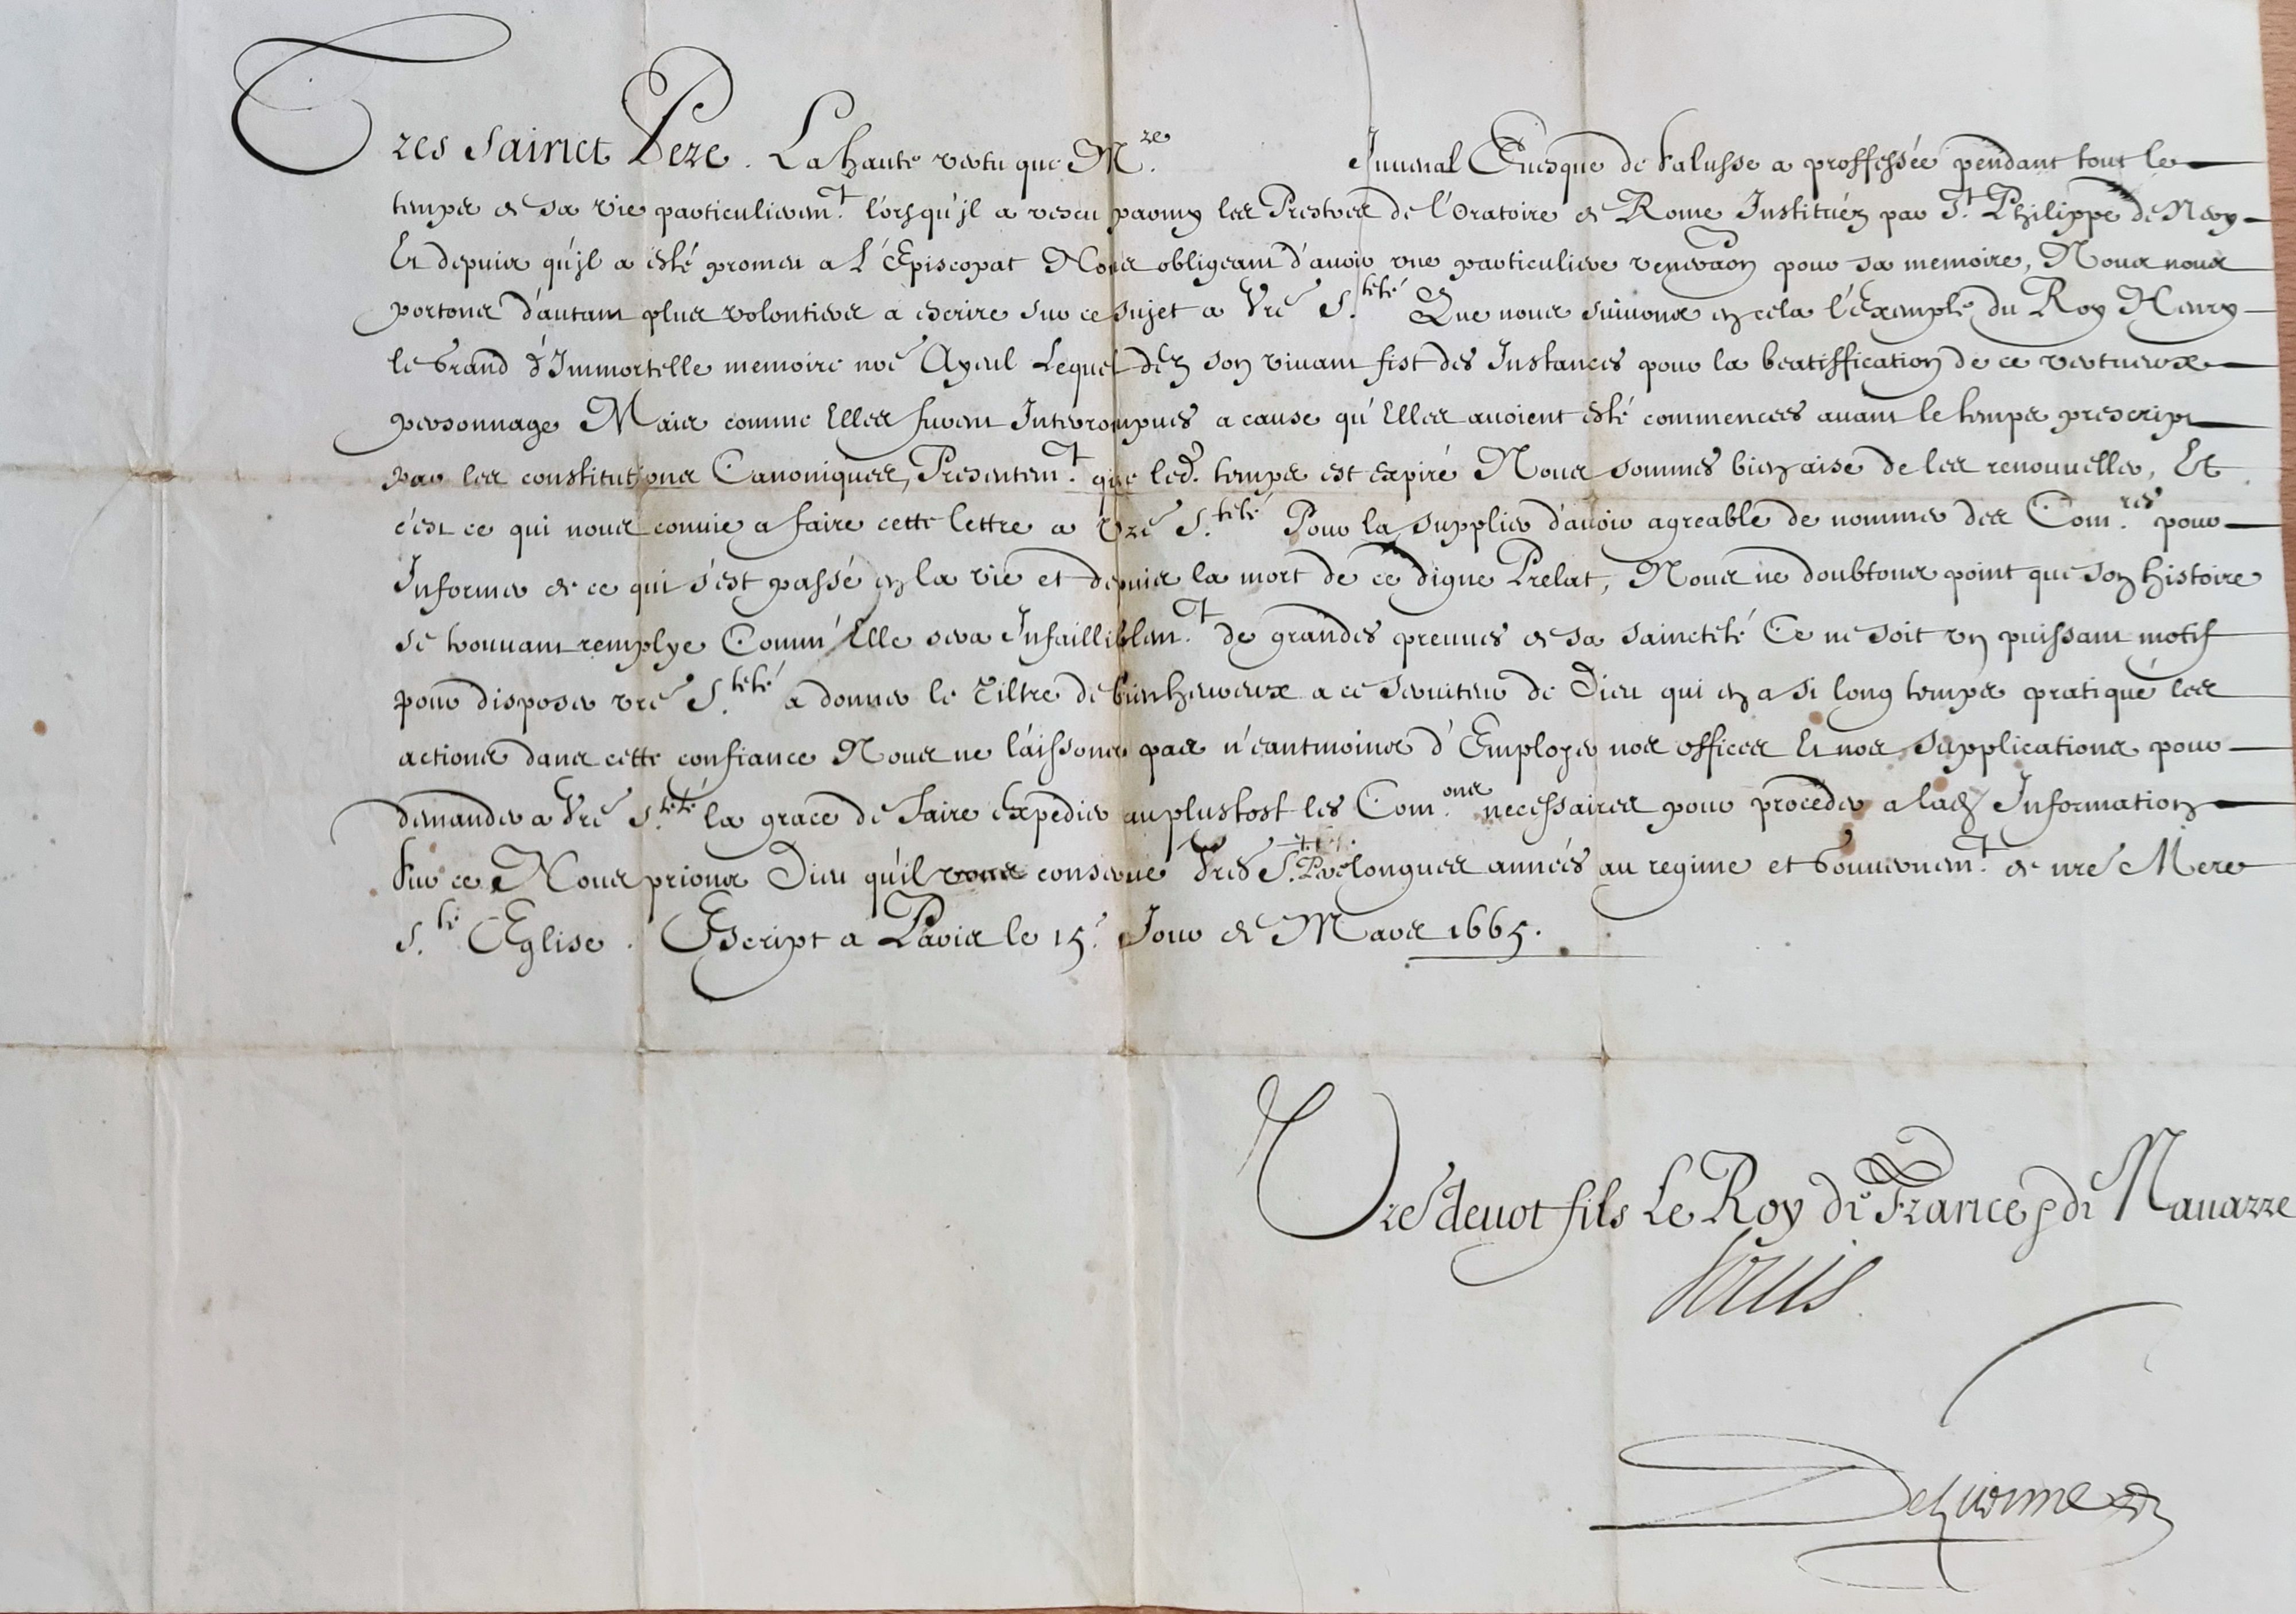 Tres sainct Pere. La haute vertu que M.re Juuenal Euesque de Salusse a proffessée pendant tout le
temps de sa vie particulierem.t lorsqu'jl a vescu parmy les Prestres de l'Oratoire de Rome Instituéz par S.t Philippe de Nery
Et depuis qu'jl a esté promeu a L'Episcopat Nous obligeant d'auoir vne particuliere veneraon pour sa memoire, Nous nous
portons d'autant plus volontiers a escrire sur ce sujet a Vre S.teté Que nous suiuons en cela l'Exemple du Roy Henry
le Grand d'Immortelle memoire nre Ayeul Lequel déz son viuant fist des Instances pour la beatiffication de ce vertueux
personnage Mais comme Elles furent Interrompues a cause qu'Elles auoient esté commencées auant le temps prescript
par les constitutions Canoniques, Presentem.t que led. temps est expiré Nous sommes bien aise de les renouueller, Et
c'est ce qui nous conuie a faire cette lettre a Vre S.teté Pour la supplier d'auoir agreable de nommer des Com.res pour
Informer de ce qui s'est passé en la vie et depuis la mort de ce digne Prelat, Nous ne doubtons point que son histoire
se trouuant remplye Comm'Elle sera Infailliblem.t de grandes preuues de sa saincteté Ce ne soit vn puissant motif
pour disposer vre S.teté a donner le Tiltre de bienheureux a ce seruiteur de Dieu qui en a si long temps pratiqué les
actions dans cette confiance Nous ne laissons pas n'eantmoins d'Employer nos offices Et nos supplications pour
demander a Vre S.teté la grace de faire Expedier au plustost les Com.ons necessaires pour proceder a lad Information
Sur ce Nous prions Dieu qu'il vous conserue Tres S. Pere longues années au regime et Gouuernem.t de nre Mere
S.te Eglise. Escript a Paris le 15.e Jour de Mars 1665.
Vre deuot fils Le Roy de France & de Nauarre
Louis